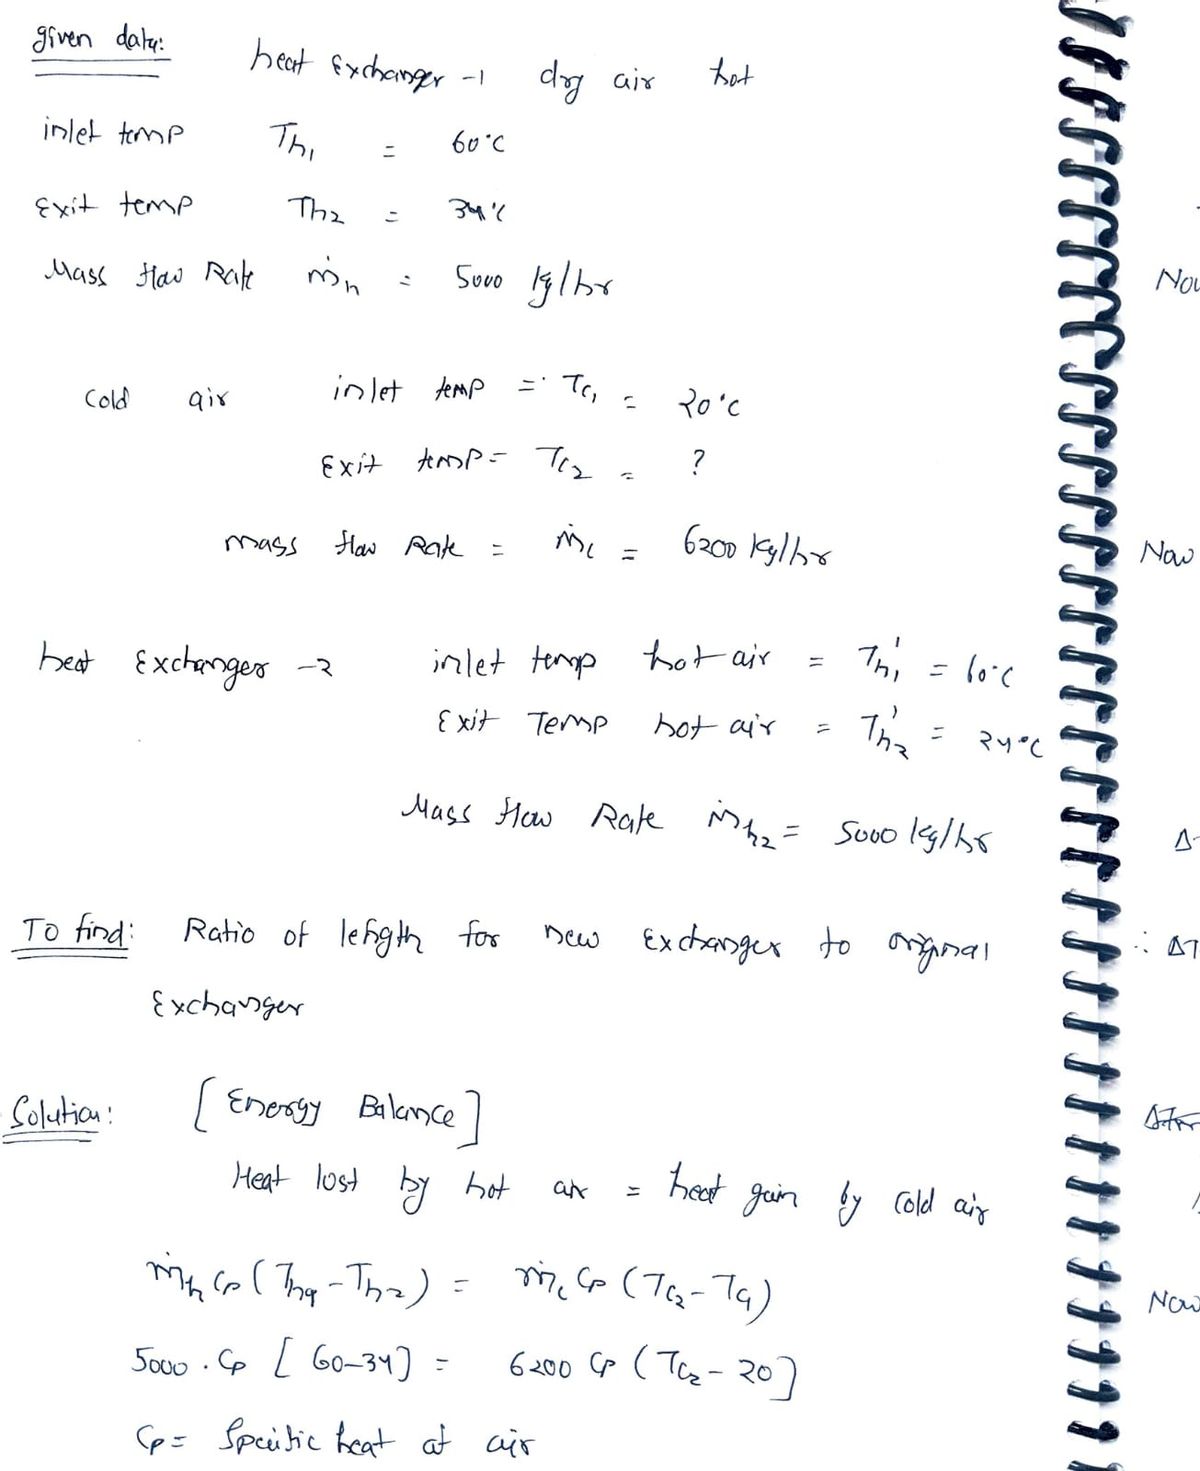 given data:
heat Exchanger -1 dry air hot
inlet temp Th1 = 60°C
Exit temp Th2 = 34°C
Mass flow Rate ṁh = 5000 kg/hr
Cold air inlet temp = Tc1 = 20°C
Exit temp = Tc2 = ?
mass flow Rate = ṁc = 6200 kg/hr
heat Exchanger -2 inlet temp hot air = Th1' = 60°C
Exit Temp hot air = Th2' = 24°C
Mass flow Rate ṁh2 = 5000 kg/hr
To find: Ratio of length for new Exchanger to original
Exchanger
Solution: [Energy Balance]
Heat lost by hot air = heat gain by cold air
ṁh Cp (Th1 - Th2) = ṁc Cp (Tc2 - Tc1)
5000 . Cp [60-34] = 6200 Cp (Tc2 - 20]
Cp = Specific heat at air
Now
Now
∴ ΔT
Now